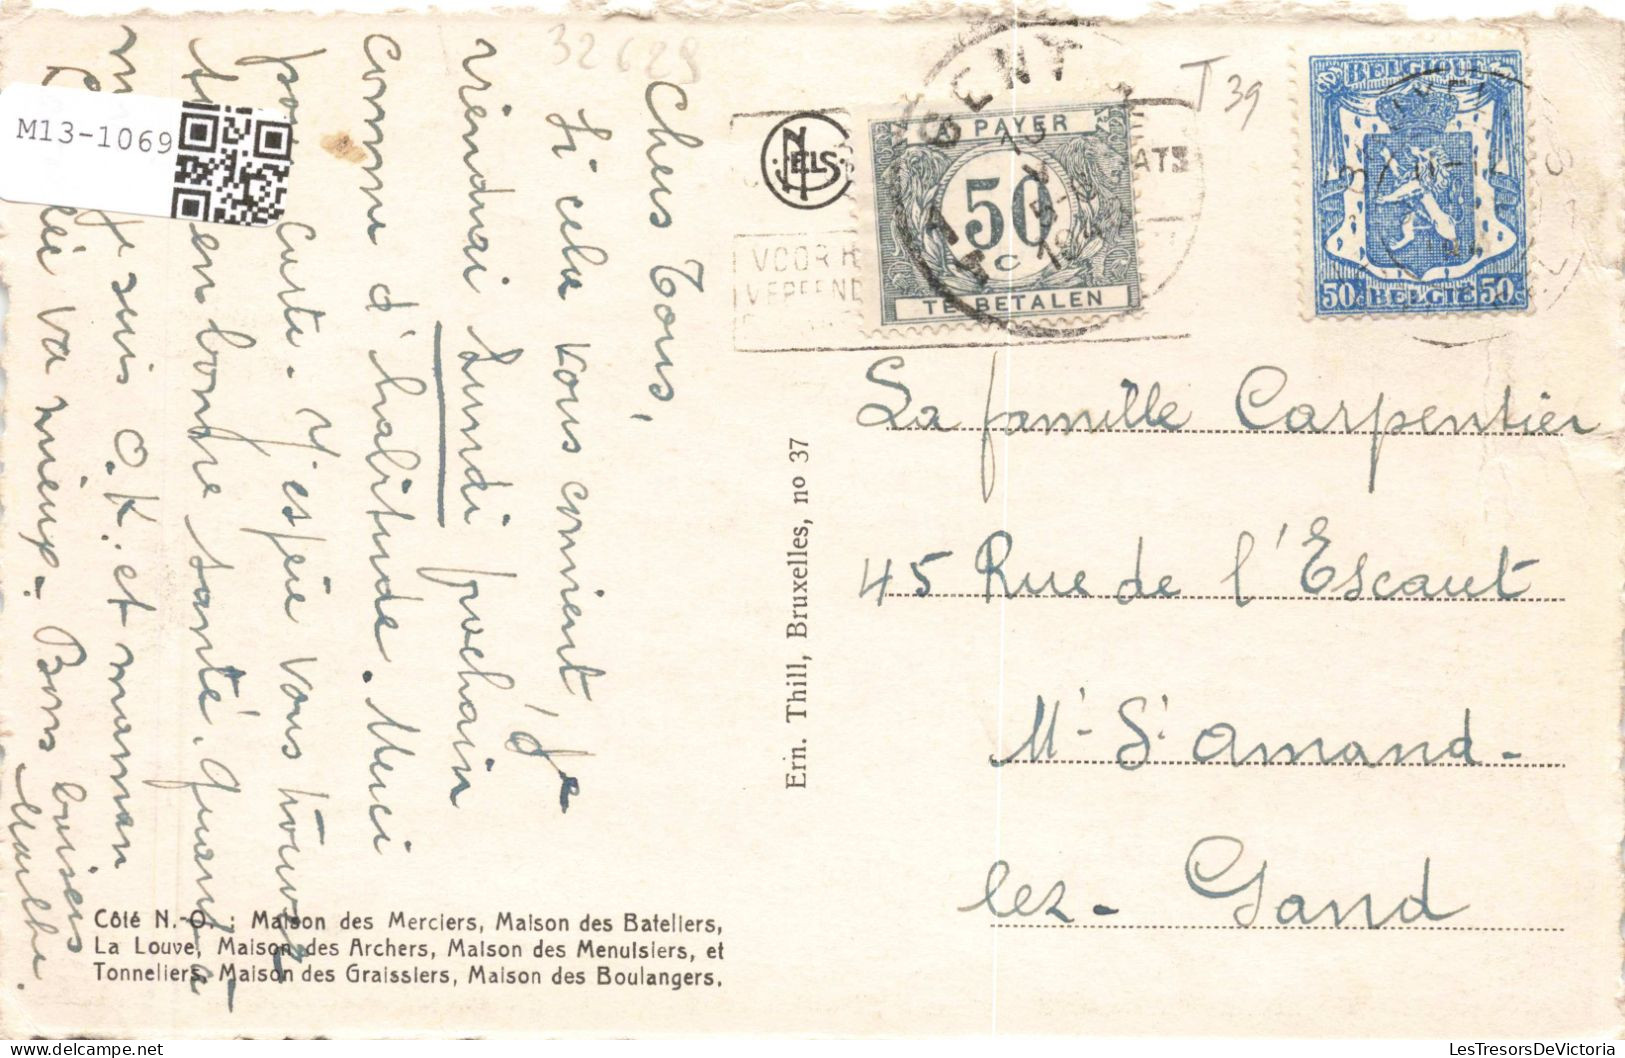 32629
T 39
M13-1069
NELS
A PAYER
50
C
TE BETALEN
GENT
BELGIQUE
50c BELGIË 50c
VOOR
Chers Tous,
Si cela vous convient, je
viendrai Lundi prochain
comme d'habitude. Merci
pour carte. J'espère vous trouver
en bonne santé. quant à
je suis O.K. et maman
va mieux. Bons baisers
Ern. Thill, Bruxelles, no 37
La famille Carpentier
45 Rue de l'Escaut
Mt St Amand-
lez-Gand
Côté N.-O. : Maison des Merciers, Maison des Bateliers,
La Louve, Maison des Archers, Maison des Menuisiers, et
Tonneliers, Maison des Graissiers, Maison des Boulangers.
LesTresorsDeVictoria